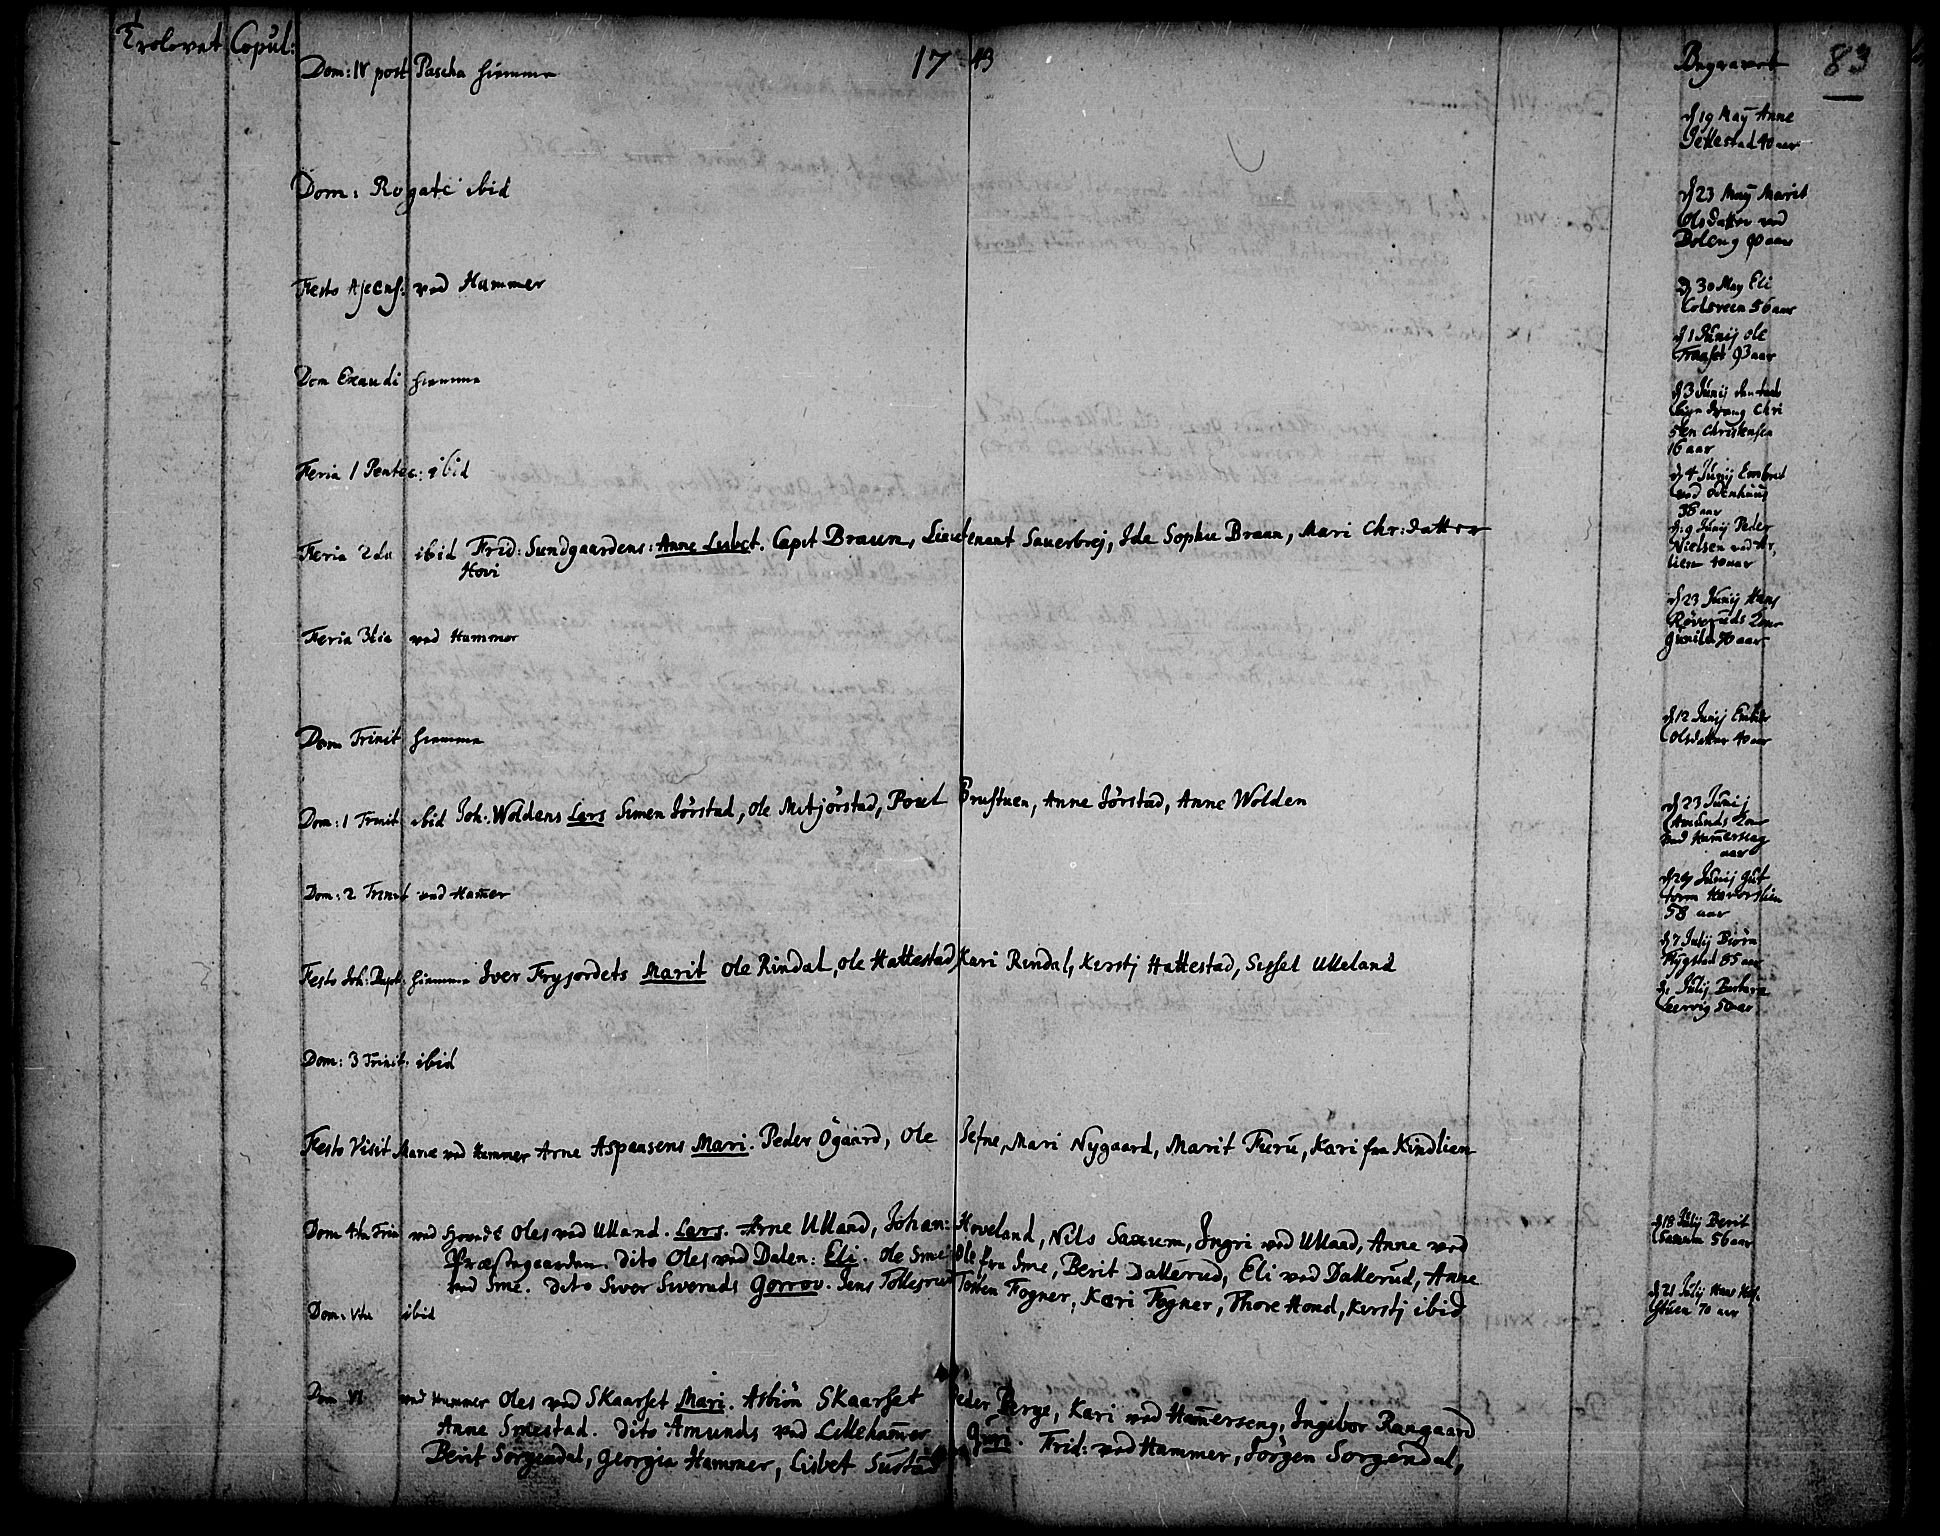 Trolovet Copul:
17 43
Begravet
83
Dom: IV post Pascha hiemme
Dom: Rogate ibid
Festo Ascens: ved Hammer
Dom Exaudi hiemme
Feria 1 Pentec: ibid
Feria 2da ibid Frid: Sundgaardens: Anne Lisbet. Capt Braun, Lieutenant Sauerbrej, Ida Sophie Braun, Mari Chr: datter
Hovi
Feria 3tia ved Hammer
Dom Trinit hiemme
Dom: 1 Trinit ibid Joh. Woldens Lars Simen Jörstad, Ole Mitjörstad, Povel Brustuen, Anne Jörstad, Anne Wolden
Dom: 2 Trinit ved Ham̄er
Festo Joh: Bapt: hiemme Iver Fryjordets Marit Ole Rindal, Ole Hattestad, Kari Rindal, Kerstj Hattestad, Sissel Ulleland
Dom: 3 Trinit: ibid
Festo Visit Mariæ ved Hammer Arne Aspaasens Mari. Peder Ögaard, Ole Jefne, Mari Nygaard, Marit Furu, Kari fra Kindlien
Dom 4ta Trin ved Oles ved Ulland. Lars. Arne Ulland, Johan: Hoveland, Nils Saxum, Ingri ved Ullaad, Anne ved
Præstegaarden. dito Oles ved Dalen: Eli. Ole Sme Ole fra Sme, Berit Dallerud, Eli ved Dallerud, Anne
ved Sme. dito Siver Siveruds Gorrov. Jens Tollesrud Tosten Fogner, Kari Fogner, Thore Hond, Kerstj ibid
Dom: Vta ibid
Dom VI ved Hammer Oles ved Skaarset Mari. Asbiön Skaarset Peder Berge, Kari ved Ham̄erseng, Ingebor Raagaard
Anne Smestad. dito Amunds ved Lilleham̄er Guri. Frid: ved Hammer, Jörgen Sorgendal,
Berit Sorgendal, Georgia Hammer, Lisbet Sustad
d 19 May Anne
Jettestad 40 aar
d 23 May Marit
Olsdatter ved
Boleng 90 aar
d 30 May Eli
Colsveen 56 aar
d 1 Junij Ole
93 aar
d 3 Junij
Chri
sten Christensen
16 aar
d 4 Junij Embret
ved Odenhuus
38 aar
d: 9 Junij Peder
Nielsen ved
lien 40 aar
d 23 Junij Hans
Röveruds
Gunild 40 aar
d 12 Junij
Olsdatter 40 aar
d 23 Junij
Amunds
ved Ham̄erseng
aar
d 29 Junij Gut
torm
58 aar
d 7 Julij Biörn
Rygstad 85 aar
d: Julij Barbara
50 aar
d 18 Julij Berit
Saxum 56 aar
d 21 Julij Hans
stuen 70 aar